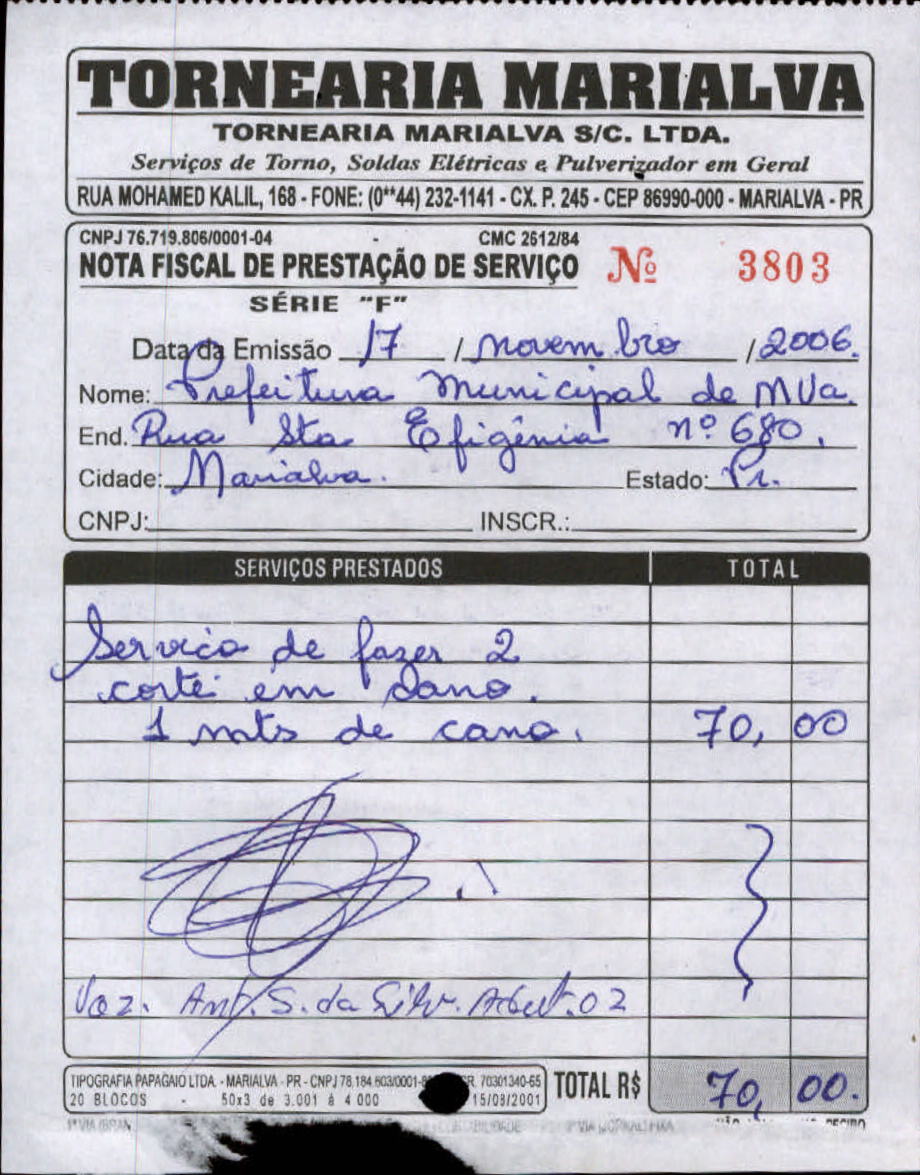 TORNEARIA MARIALVA
TORNEARIA MARIALVA S/C. LTDA.
Serviços de Torno, Soldas Elétricas e Pulverizador em Geral
RUA MOHAMED KALIL, 168 - FONE: (0**44) 232-1141 - CX. P. 245 - CEP 86990-000 - MARIALVA - PR
CNPJ 76.719.806/0001-04 CMC 2612/84
NOTA FISCAL DE PRESTAÇÃO DE SERVIÇO Nº 3803
SÉRIE "F"
Data da Emissão 17 / novembro / 2006.
Nome: Prefeitura Municipal de MVa.
End. Rua Sta Efigênia nº 680.
Cidade: Marialva. Estado: Pr.
CNPJ: INSCR.:
SERVIÇOS PRESTADOS TOTAL
Servico de fazer 2
corte em cano.
1 mts de cano. 70,00
Ant. S. da Silv. 02
TIPOGRAFIA PAPAGAIO LTDA. - MARIALVA - PR - CNPJ 78.184.603/0001- 70301340-65
20 BLOCOS - 50x3 de 3.001 à 4 000 15/08/2001
TOTAL R$ 70,00.